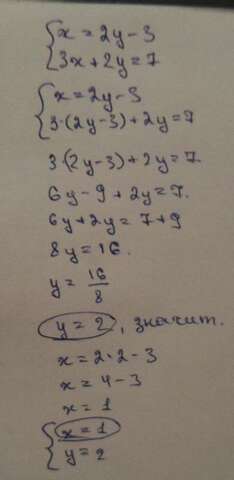 x = 2y - 3
3x + 2y = 7
x = 2y - 3
3·(2y - 3) + 2y = 7
3·(2y - 3) + 2y = 7.
6y - 9 + 2y = 7.
6y + 2y = 7 + 9
8y = 16.
y = 16/8
y = 2, значит.
x = 2·2 - 3
x = 4 - 3
x = 1
x = 1
y = 2